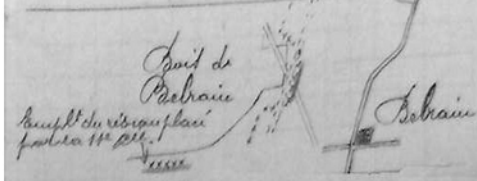 Bois de
Belrain
Empl<sup>t</sup> du réseau placé
par la 11<sup>e</sup> Cie.
Belrain